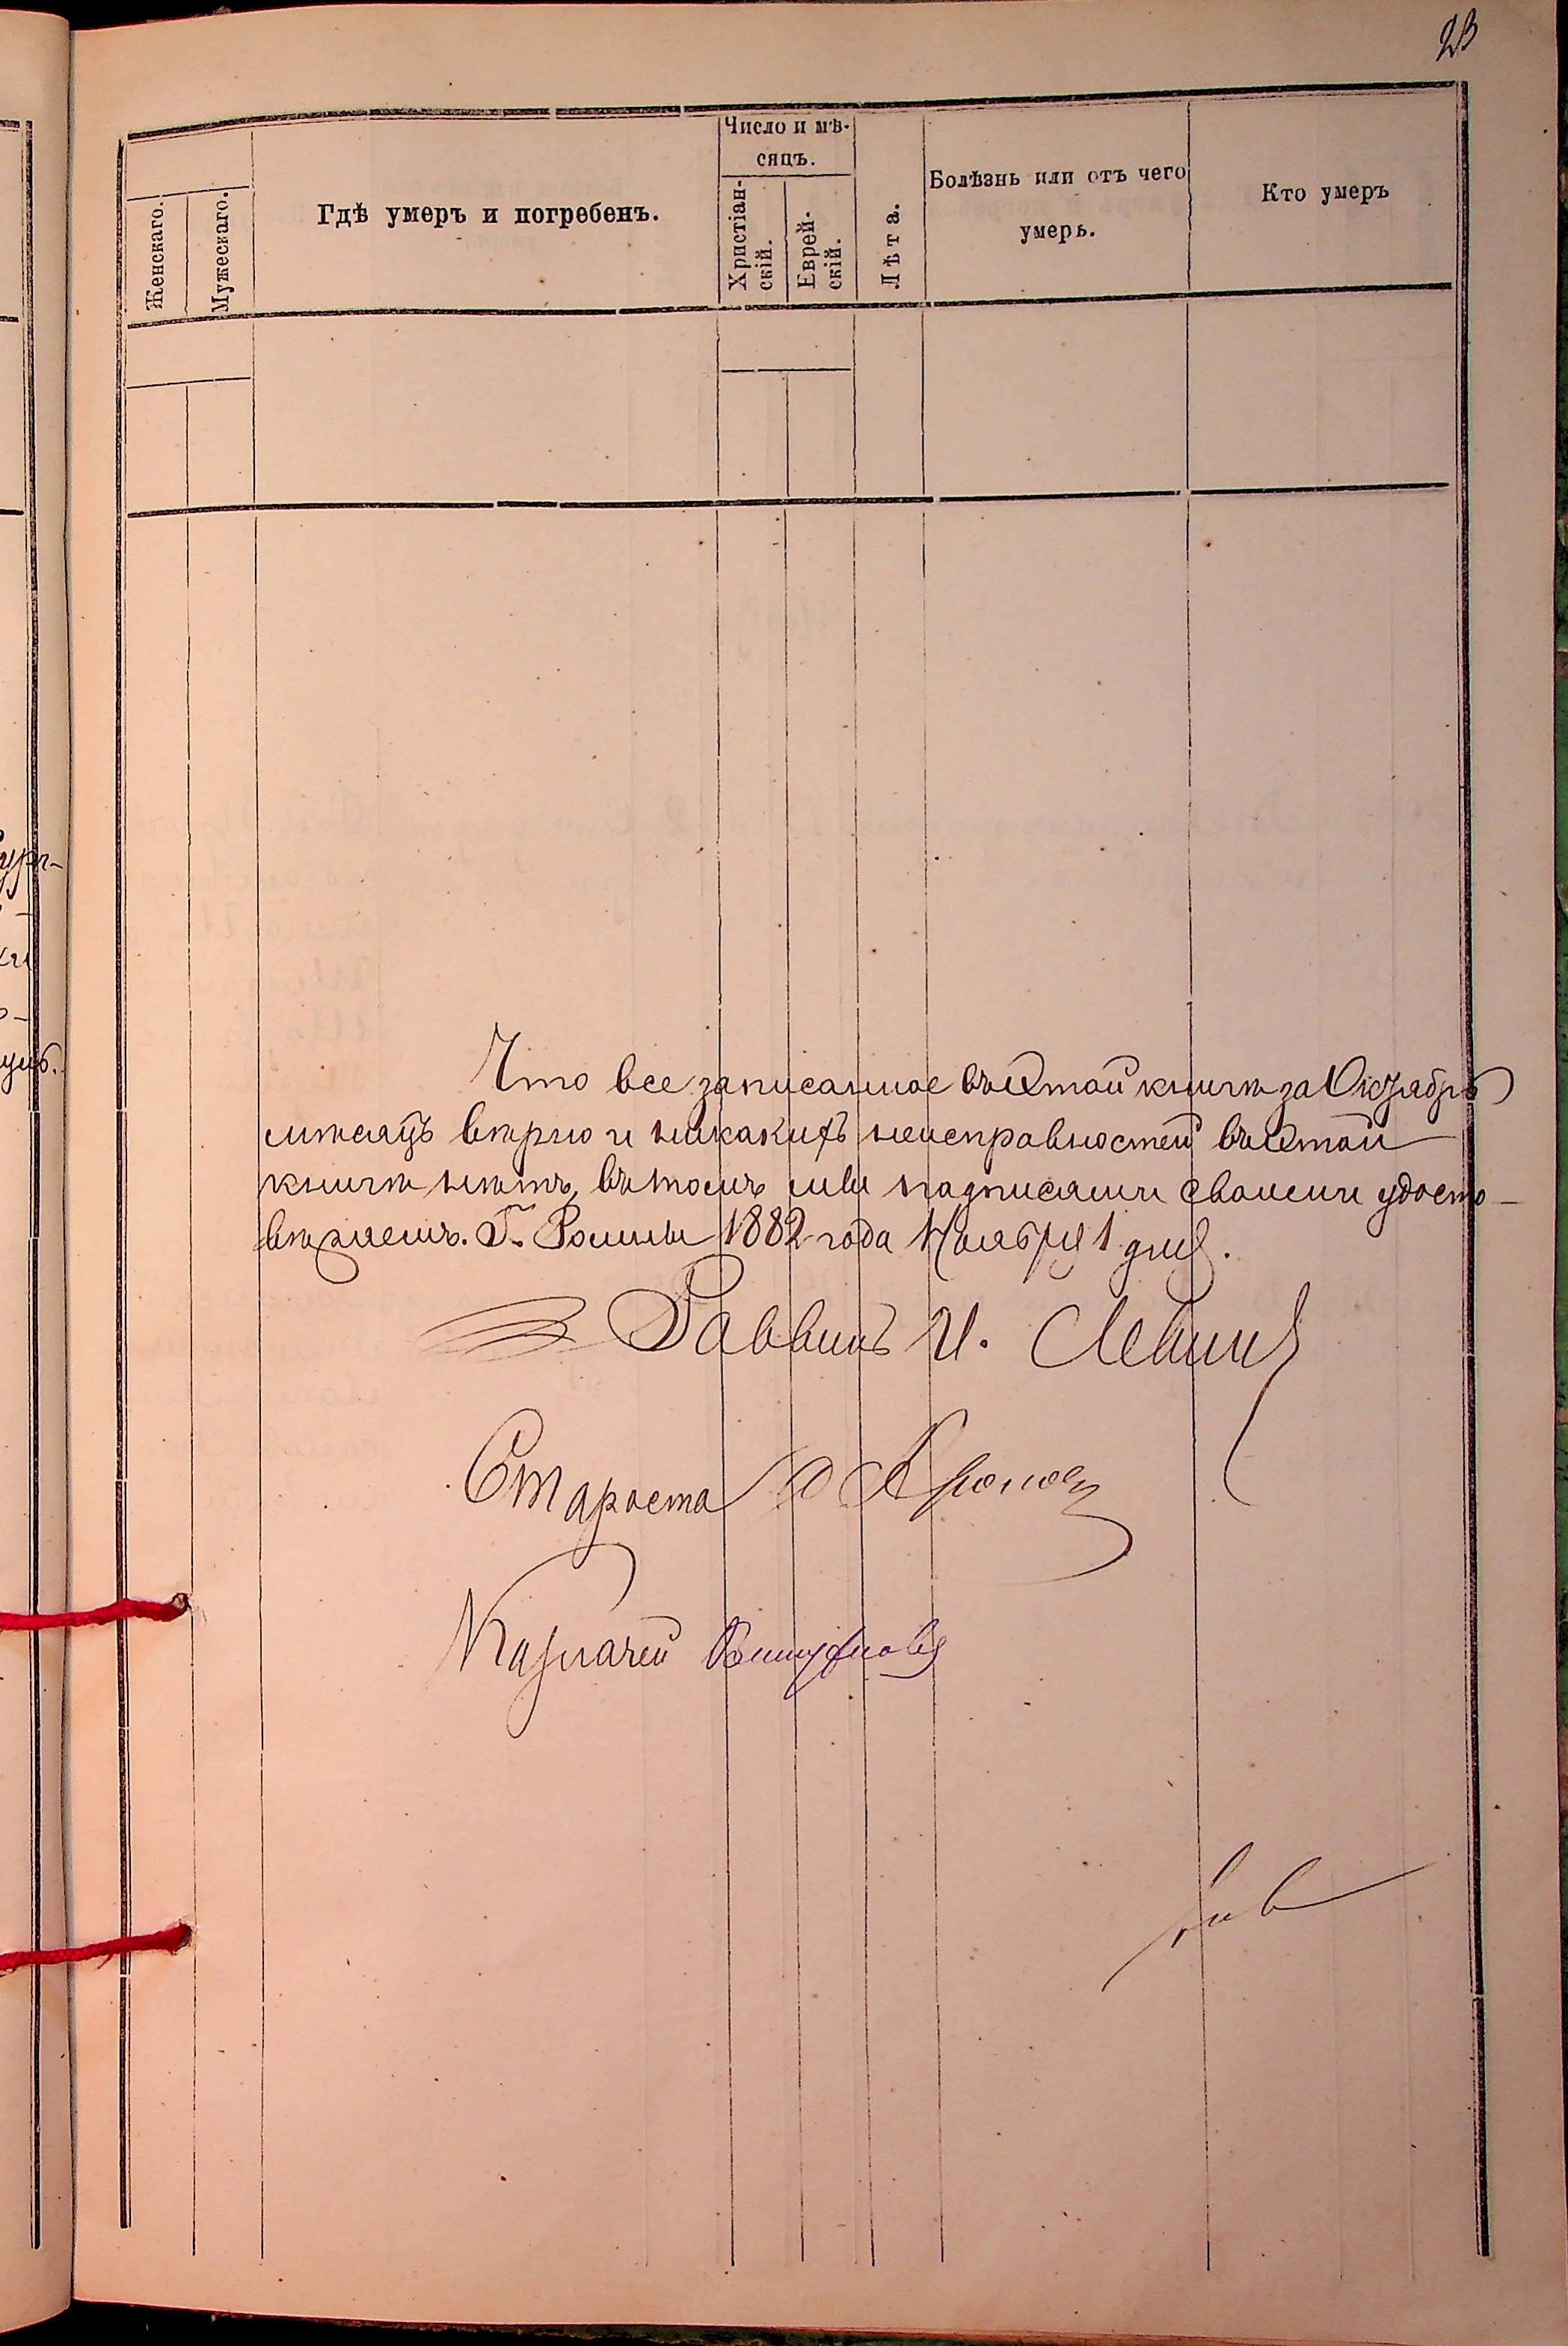 23
Женскаго.
Мужескаго.
Гдѣ умеръ и погребенъ.
Число и мѣ-
сяцъ.
Христіан-
скій.
Еврей-
скій.
Лѣта.
Болѣзнь или отъ чего
умеръ.
Кто умеръ
Что все записанное въ етой книгѣ за Октябрь
мѣсяцъ вѣрно и никакихъ неисправностей въ етой
книгѣ нѣтъ, въ томъ мы подписями своими удосто-
вѣряемъ. Г. Ромны 1882 года Ноября 1 дня.
Раввинъ И. Левинъ
Староста
Казначей